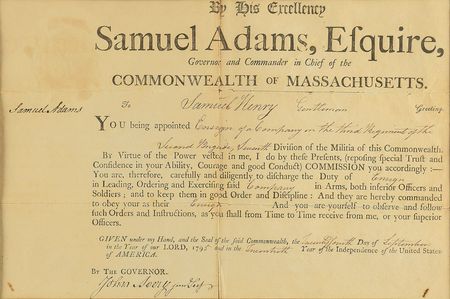 By His Excellency
Samuel Adams, Eſquire,
Governor and Commander in Chief of the
COMMONWEALTH OF MASSACHUSETTS.
Samuel Adams
To Samuel Henry Gentleman Greeting.
YOU being appointed Ensign of a Company in the third Regiment of the
Second Brigade, Seventh Diviſion of the Militia of this Commonwealth.
By Virtue of the Power veſted in me, I do by theſe Preſents, (repoſing ſpecial Truſt and
Confidence in your Ability, Courage and good Conduct) COMMISSION you accordingly :—
You are, therefore, carefully and diligently to diſcharge the Duty of Ensign
in Leading, Ordering and Exerciſing ſaid Company in Arms, both inferior Officers and
Soldiers ; and to keep them in good Order and Diſcipline : And they are hereby commanded
to obey you as their Ensign And you are yourſelf to obſerve and follow
ſuch Orders and Inſtructions, as you ſhall from Time to Time receive from me, or your ſuperior
Officers.
GIVEN under my Hand, and the Seal of the ſaid Commonwealth, the Day of September
in the Year of our LORD, 1795 and in the Year of the Independence of the United States
of AMERICA.
By THE GOVERNOR.
John Avery junr Secy